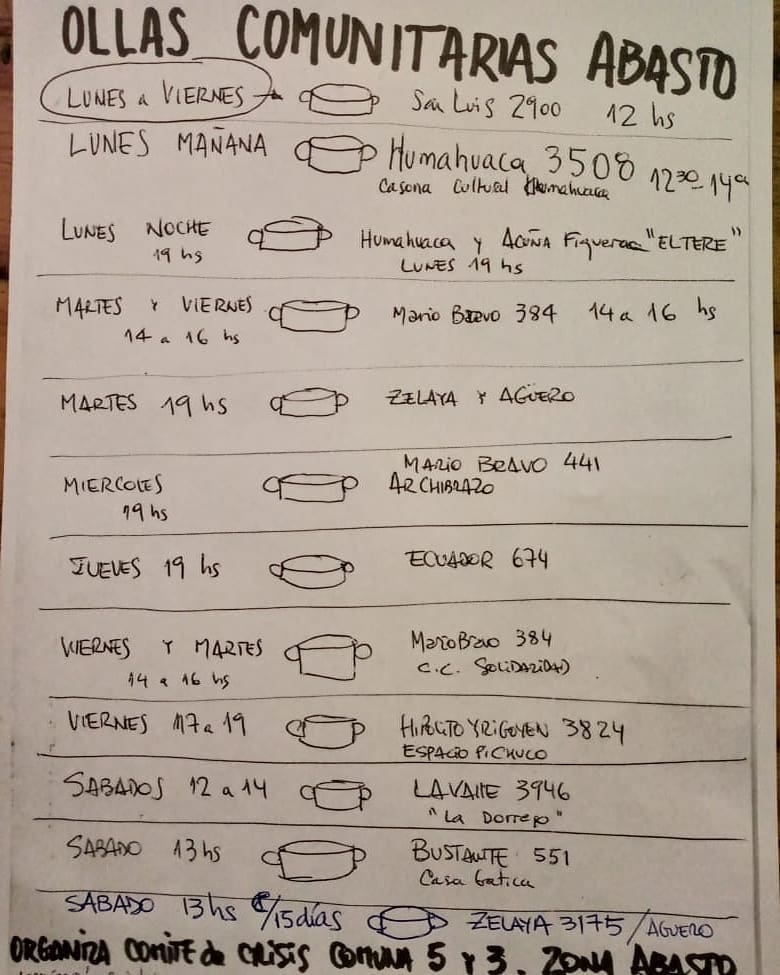 OLLAS COMUNITARIAS ABASTO
LUNES a VIERNES San Luis 2900 12 hs
LUNES MAÑANA Humahuaca 3508 1230-14a
Casona Cultural Humahuaca
LUNES NOCHE Humahuaca y Acuña Figueroa "EL TERE"
19 hs LUNES 19 hs
MARTES Y VIERNES Mario Bravo 384 14 a 16 hs
14 a 16 hs
MARTES 19 hs ZELAYA Y AGÜERO
MARIO BRAVO 441
MIERCOLES ARCHIBRAZO
19 hs
JUEVES 19 hs ECUADOR 674
VIERNES Y MARTES Mario Bravo 384
14 a 16 hs C.C. SOLIDARIDAD
VIERNES 17 a 19 HIPOLITO YRIGOYEN 3824
ESPACIO PICHUCO
SABADOS 12 a 14 LAVALLE 3946
"La Dorrego"
SABADO 13 hs BUSTAMTE 551
Casa Gatica
SABADO 13 hs C/15 días ZELAYA 3175 / AGUERO
ORGANIZA COMITE de CRISIS COMUNA 5 Y 3. ZONA ABASTO